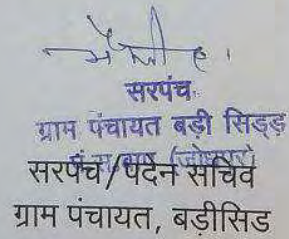 सरपंच
ग्राम पंचायत बड़ी सिड्ड
पं.स. बाप (जोधपुर)
सरपंच/पदेन सचिव
ग्राम पंचायत, बड़ीसिड